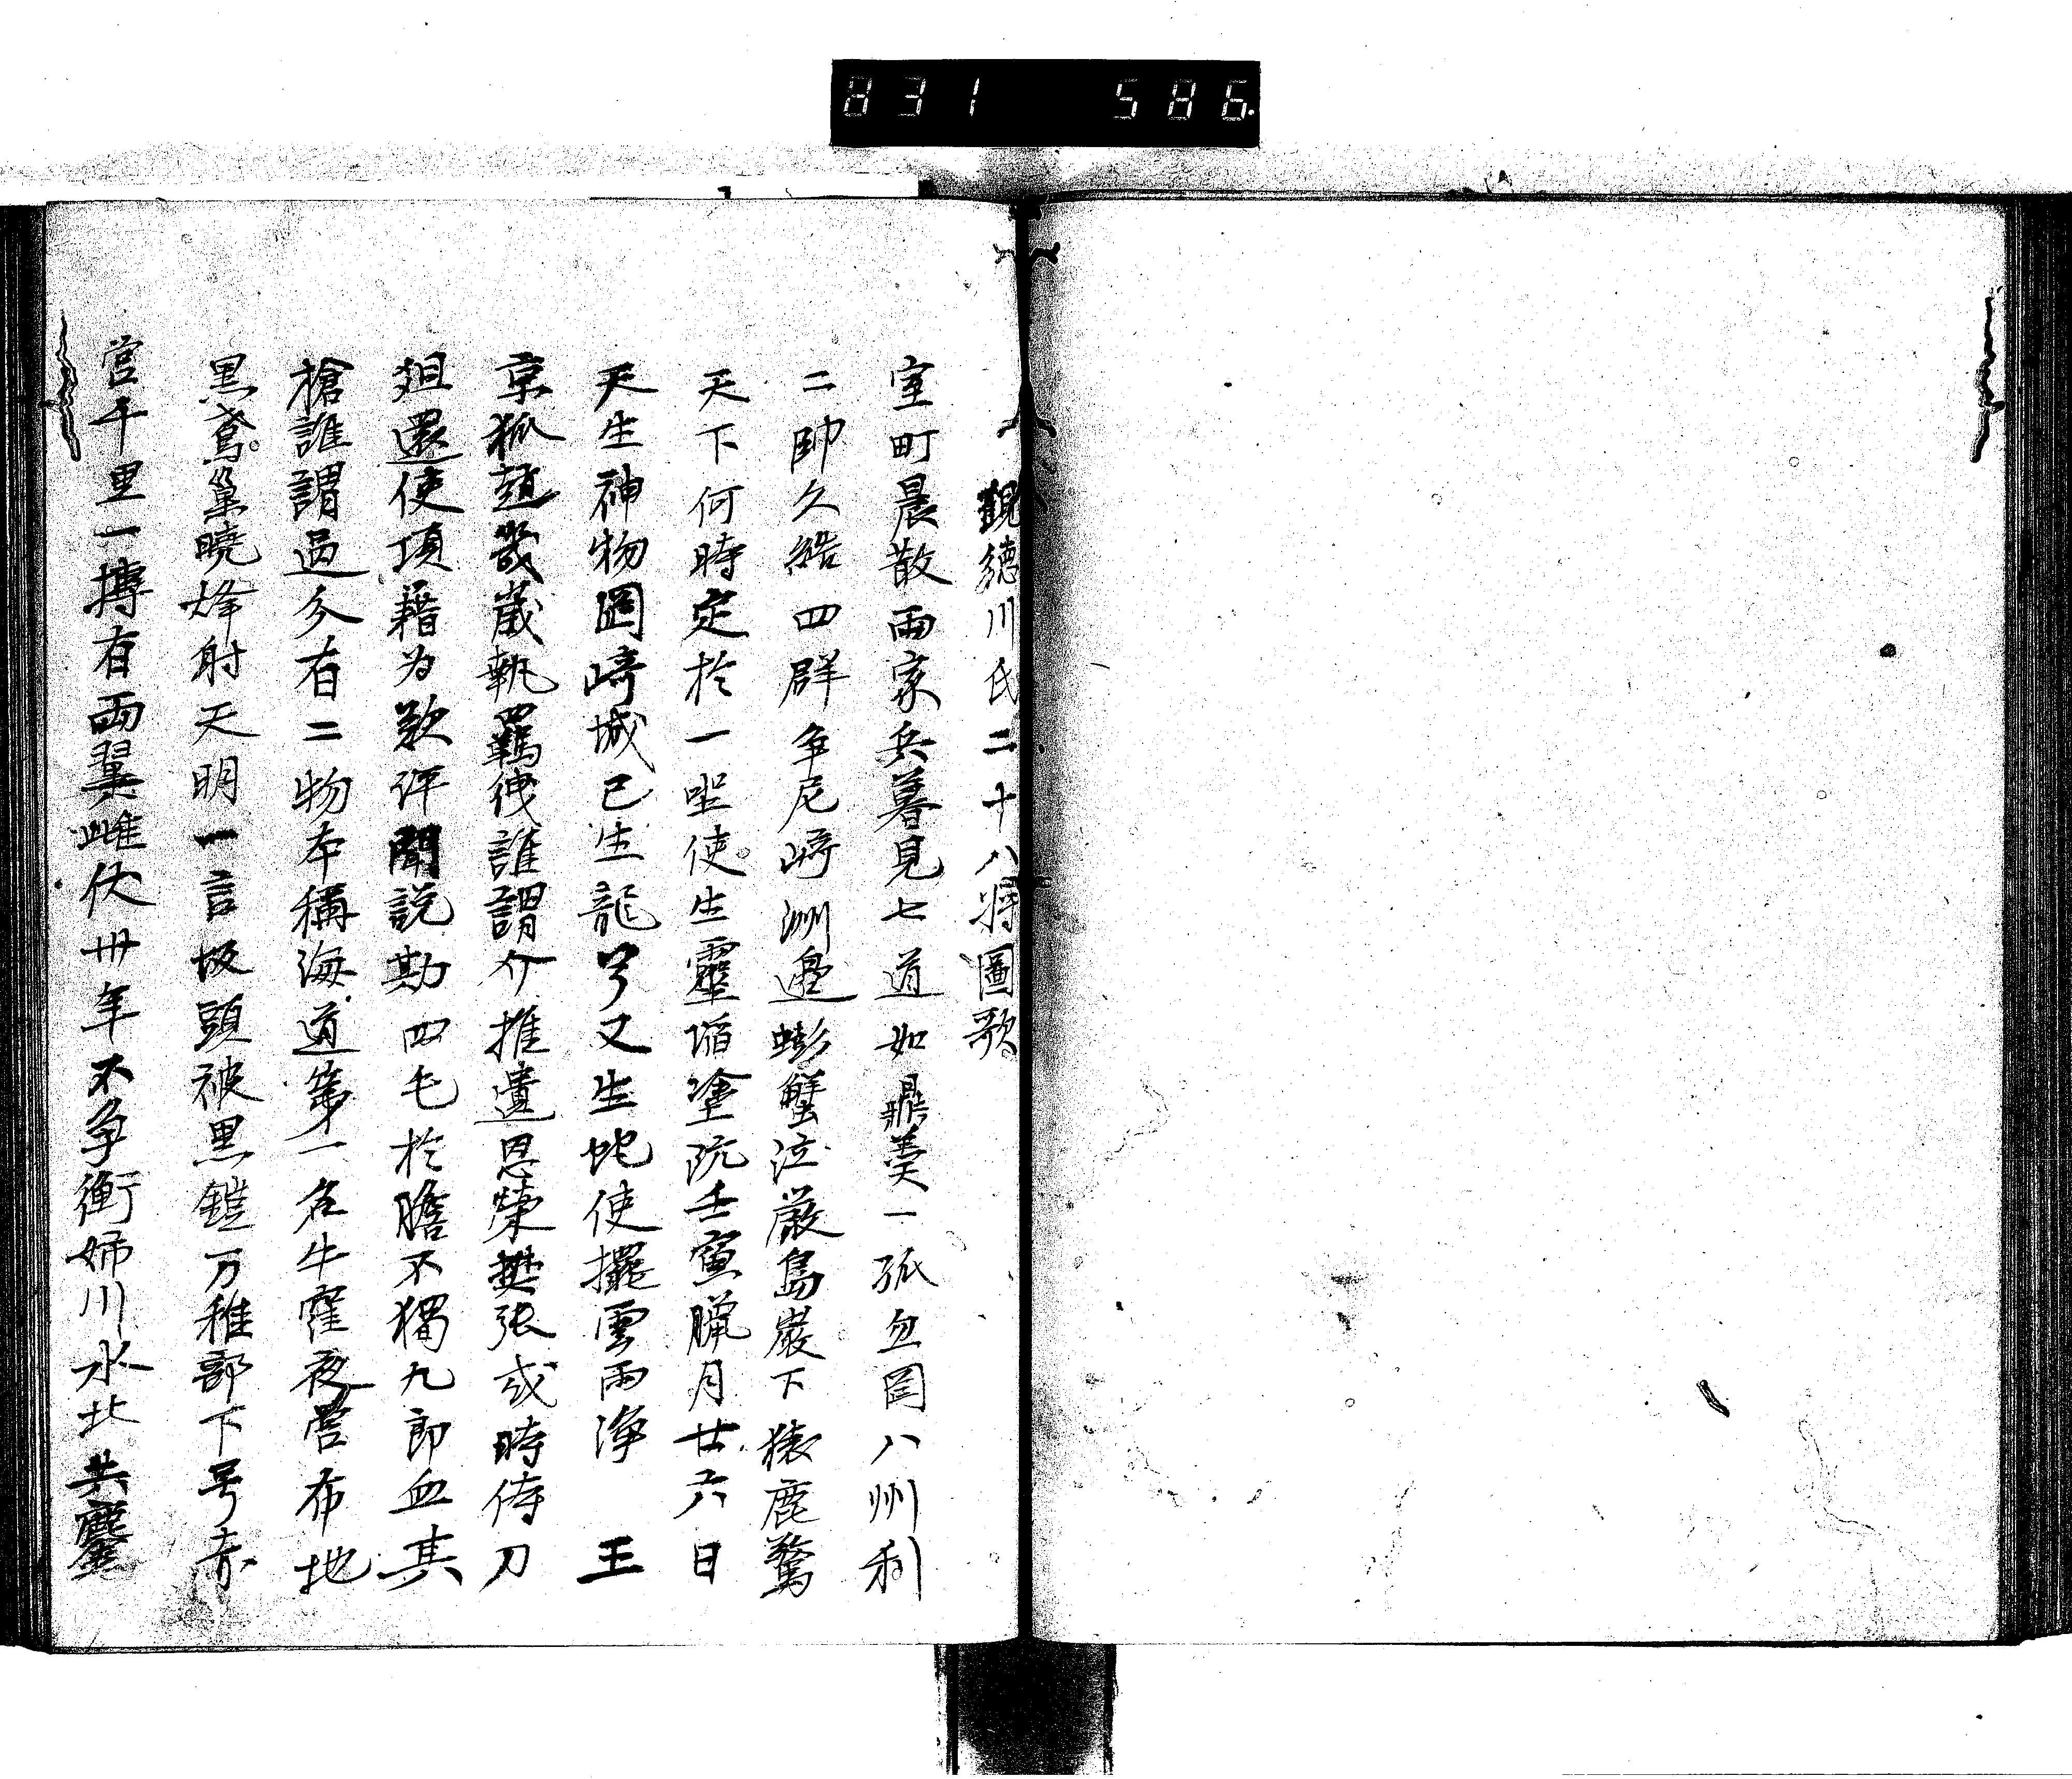 831 586.
觀德川氏二十八将圖歌
室町晨散両家兵暮見七道如鼎羹一孤血圀八州利
二帥久結四群争尼﨑洲邊蟛蟹泣厳島巖下猿鹿驚
天下何時定於一坐使生靈滔塗阬壬寅臘月廿六日
天生神物岡﨑城已生龍兮又生蛇使擺雲雨浄 王
京狐趙幾歳執羈絏誰謂介推遺恩榮樊張或時侍刀
俎還使項籍为歎評聞説勘四毛於膽不獨九郎血其
槍誰謂過分有二物本稱海道第一名牛窪夜営布地
黒鳶巢曉烽射天明一言坂頭被黒鎧万稚部下号赤
営千里一摶有両翼雌伏卅年不争衡姉川水北共鏖